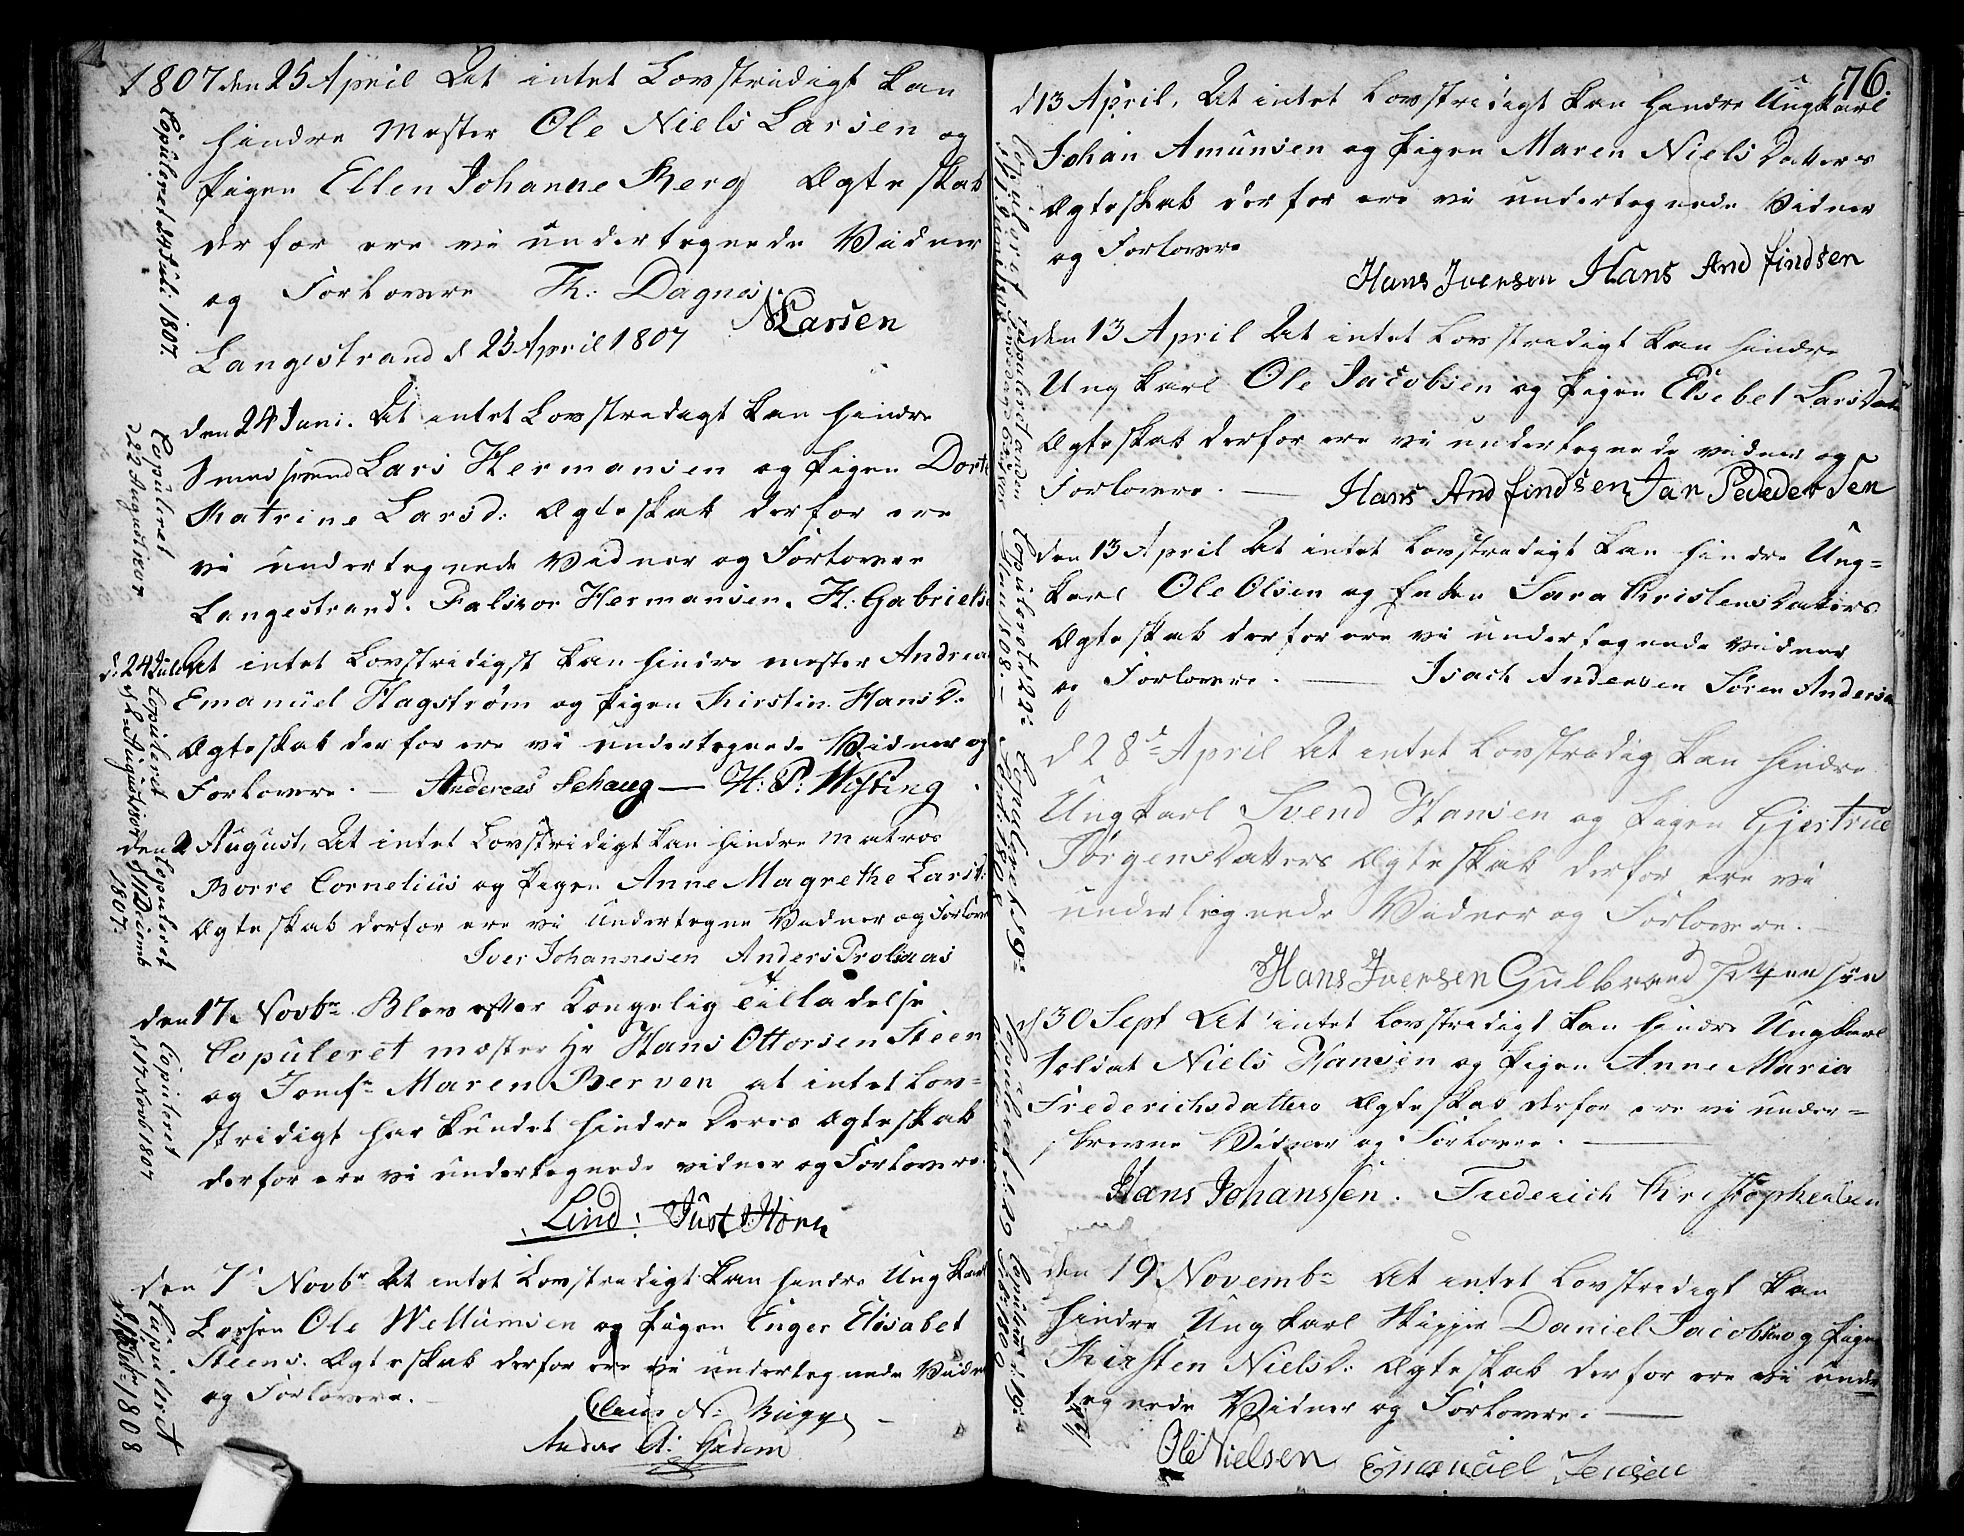 1807 den 25 April At intet Lovstridigt kan
hindre Mester Ole Niels Larsen og
Pigen Ellen Johanne Berg Ægteskab
derfor ere vi undertegnede Vidner
og Forlovere Th: Dagnæs
N Larsen
Langestrand d 23 April 1807
Copuleret 24 Juli 1807.
den 24 Juni. At intet Lovstridigt kan hindre
Smed svend Lars Hermansen og Pigen Dorte
Katrine Larsd: Ægteskab derfor ere
vi undertegnede Vidner og Forlovere
Langestrand. Falsvor Hermansen. H: Gabriels
Copuleret
d 22 August 1807
d: 24 Juli At intet Lovstridigst kan hindre mester Andreas
Emanuel Hagstrøm og Pigen Kirstin Hans D.
Ægteskab derfor ere vi undertegnede Vidner og
Forlovere. — Andereas Sehaug — H: P: Wisting
Copuleret
den 2 August, At intet Lovstridigt kan hindre matros
Borre Cornelius og Pigen Anne Magrethe Larsd:
Ægteskab derfor ere vi undertegne Vidner og Forlove
Iver Johannesen Anders
Copuleret
d 11 Decemb
1807.
den 17 Novbr. Blev efter Kongelig Tilladelse
Copuleret mester Hr Hans Ottersen Steen
og Jomfr Maren Berven at intet Lov=
stridigt har kundet hindre deres Ægteskab
derfor ere vi undertegnede vidner og Forlovere.
Lind: Just Horn
Copuleret
d 17 Novb 1807
den 7 Novbr At intet Lovstridigt kan hindre Ung karl
Ole Wellumsen og Pigen Inger Elisabet
Steens. Ægteskab derfor ere vi undertegnede Vidner
og Forlovere.
Claus N: Bugge
Andrs A:
Copuleret
1808
76.
d 13 April, At intet Lovstridigt kan hindre Ungkarl
Johan Amunsen og Pigen Maren Niels Datters
Ægteskab derfor ere vi undertegnede Vidner
og Forlovere
Hans Iversen Hans And findsen
den 13 April At intet Lovstridigt kan hindre
Ung karl Ole Jacobsen og Pigen Elsebet Lars Dat
Ægteskab derfor ere vi undertegnede vidner og
Forlovere. — Hans And findsen Jan Pededersen
den 13 April At intet Lovstridigt kan hindre Ung=
karl Ole Olsen og Enken Sara Kristens Daters
Ægteskab derfor ere vi undertegnede Vidner
og Forlovere. — Isach Andersen Søren Andersen
d 28de April At intet Lovstridig kan hindre
Ungkarl Svend Hansen og Pigen Gjertrue
Jørgens Datters Ægteskab derfor ere vi
undertegnede Vidner og Forlovere. —
Hans Iversen Gulbrand
d 30 Sept At intet Lovstridigt kan hindre Ungkarl
Soldat Niels Hansen og Pigen Anne Maria
Frederichsdatters Ægteskab derfor ere vi under=
skrevne Vidner og Forlovere. —
Hans Johanssen. Frederich Kristophersen
den 19 Novembr At intet Lovstridigt kan
hindre Ungkarl Skipper Daniel Jacobsen og Pigen
Kirsten Nielsd: Ægteskab derfor ere vi unde
tegnede Vidner og Forlovere. —
Ole Nielsen Emanuel Jensen